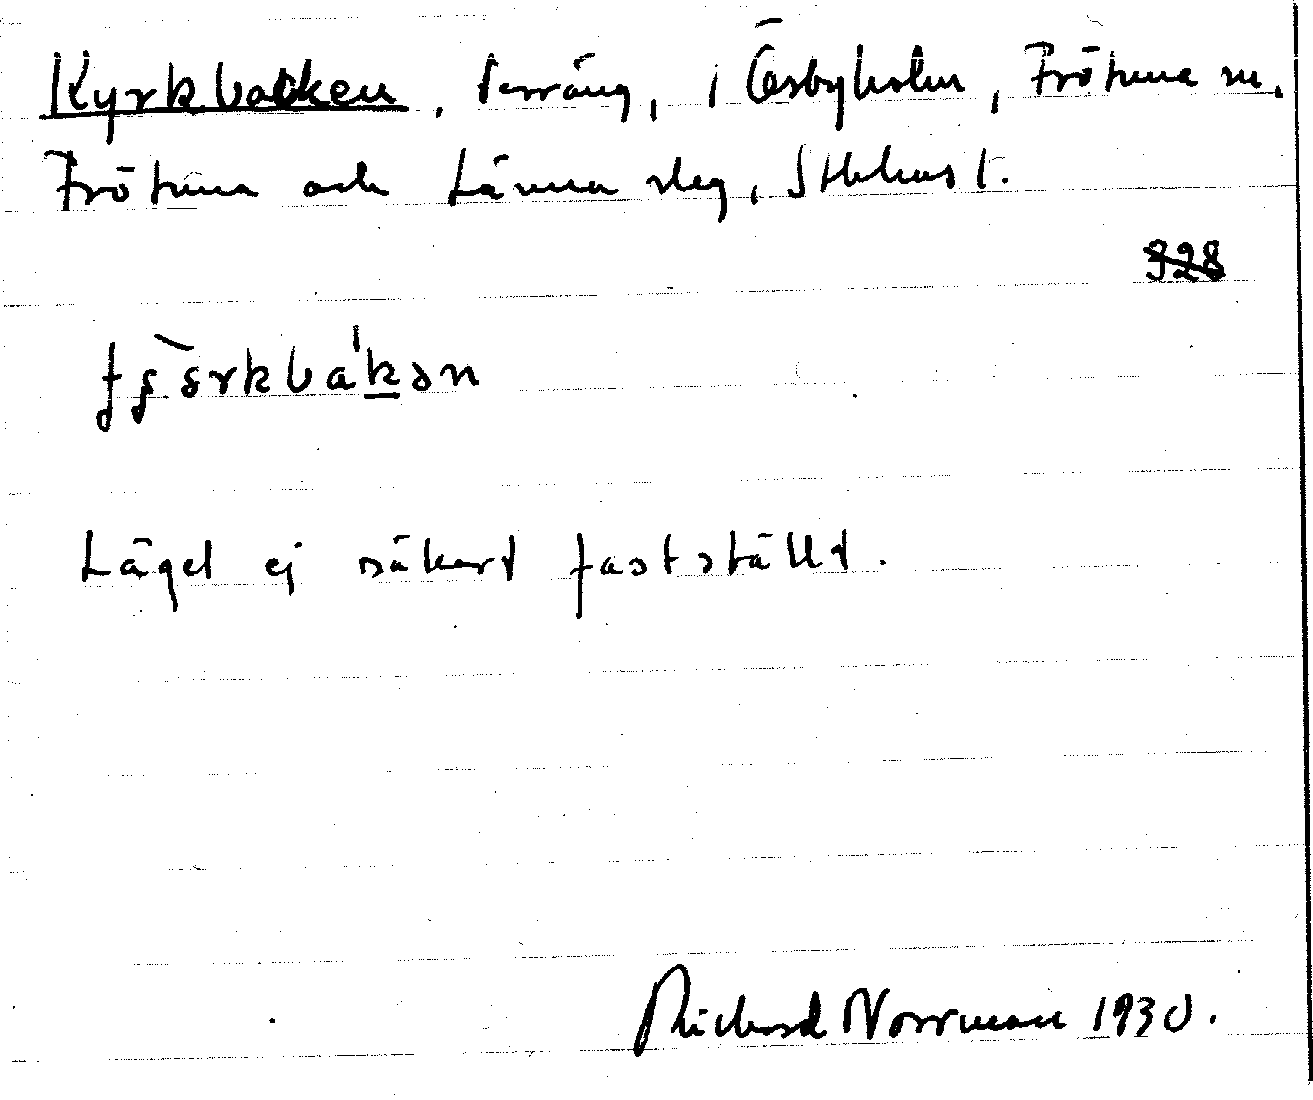 Kyrkbacken, terräng, i Österbyholm, Frötuna sn,
Frötuna och Länna slag, Sthlms l.
928
Läget ej säkert fastställt.
Richard Norrman 1930.